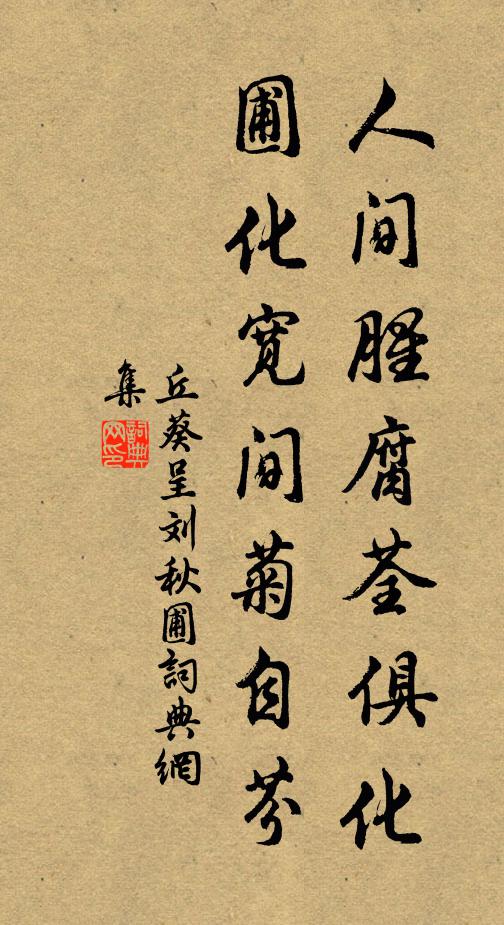 人间腥腐荃俱化
圃化宽间菊自芬
丘葵呈刘秋圃詞典網
集
詞典
网印